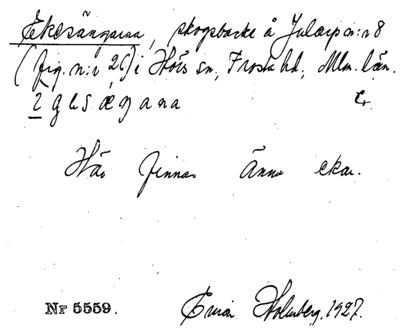 Ekesängarna, skogsbacke å Jularp n:r 8
(fig. n:r 26) i Hörs sn, Frosta hd, Mlm. län.
Här finnas ännu ekar.
Nr 5559. Holmberg. 1927.